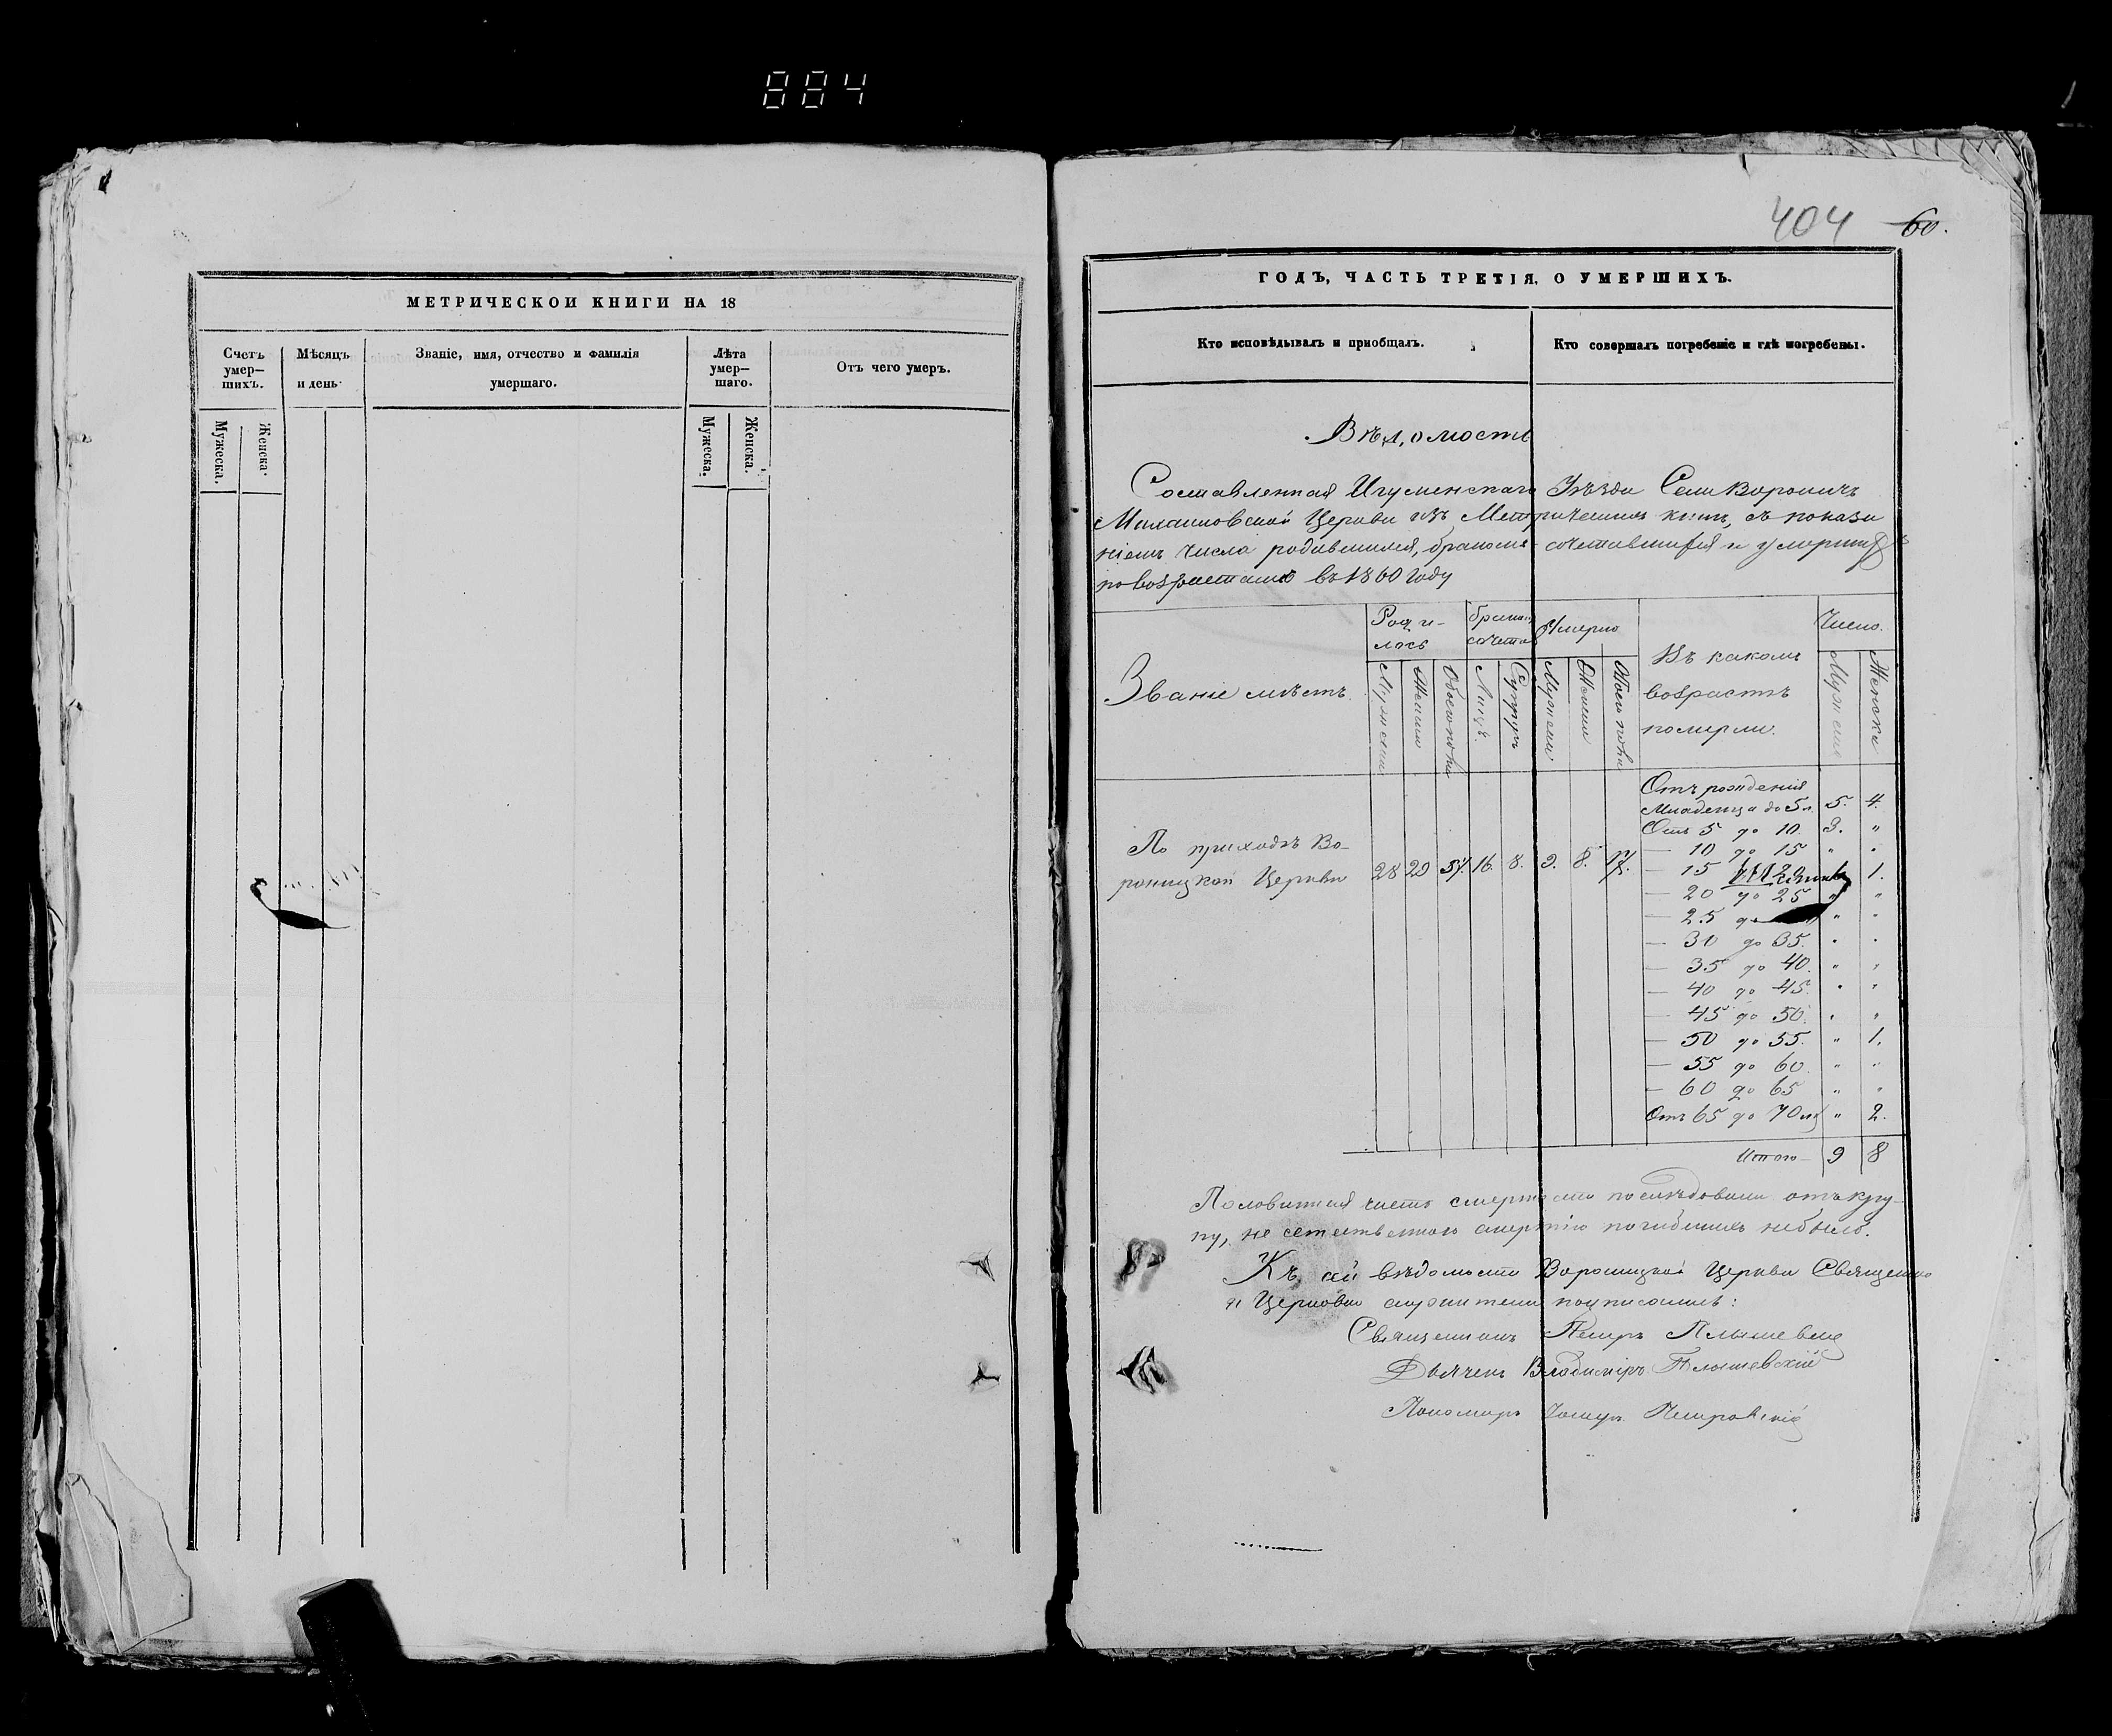 884
МЕТРИЧЕСКОИ КНИГИ НА 18
Счетъ умер— шихъ.
Мужеска.
Женска.
Мѣсяцъ и день.
Званіе, имя, отчество и фамилія
умершаго.
Лѣта умер— шаго.
Мужеска.
Женска.
Отъ чего умеръ.
404 60.
ГОДЪ, ЧАСТЬ ТРЕТІЯ, О УМЕРШИХЪ.
Кто исповѣдывалъ и пріобщалъ.
Кто совершалъ погребеніе и гдѣ погребены.
Вѣдомость
Составленная Игуменскаго Уѣзда Села Вороничъ
Михаиловской Церкви изъ Метрическихъ книгъ, съ показа
ніемъ числа родившихся, бракомъ сочетавшихся и умершихъ
по возрастамъ въ 1860 году
Званіе мѣстъ.
Роди-
лось
бракомъ
сочета
Умерло
Въ какомъ
возрастѣ
померли.
Число.
Мужеска
Женска
Обоего пола
Лицъ.
Супруг
Мужеска
Женска
Обоего пола
Мужеска
Женска
По приходѣ Во-
роницкой Церкви
28 29 57. 16. 8. 9. 8. 17.
Отъ рожденія
Младенца до 5 л. 5. 4.
Отъ 5 до 10. 3. "
— 10 до 15 " "
— 15 1.
— 20 до 25 " "
— 25 до " "
— 30 до 35. " "
— 35 до 40. " "
— 40 до 45. " "
— 45 до 50. " "
— 50 до 55. " 1.
— 55 до 60. " "
— 60 до 65 " "
Отъ 65 до 70 " 2.
Итого — 9 8
Половинная часть смертности послѣдовали отъ кру-
пу, не естественною смертію погибшихъ небыло.
Къ сей вѣдомости Вороницкой Церкви Священно
и Церковно служители подписались:
Священникъ Петръ Плышевск
Дьячекъ Владиміръ Плышевскій
Пономарь Петровскій